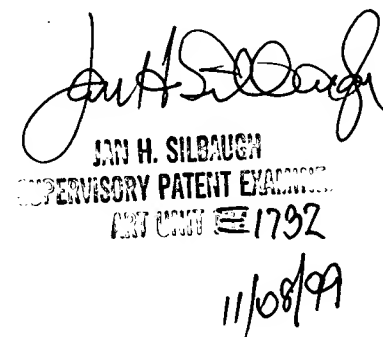 Jan H Silbaugh
JAN H. SILBAUGH
SUPERVISORY PATENT EXAMINER
ART UNIT 1732
11/08/99